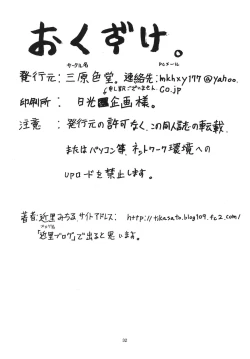 おくづけ。
サークル名 PCメール
発行元:三原色堂。連絡先:mkhxy177@yahoo.
申し訳ございません。co.jp
印刷所:日光企画様。
注意:発行元の許可なく、この同人誌の転載、
またはパソコン等、ネットワーク環境への
UPロードを禁止します。
著者:近里みちる サイトアドレス:http://tikasato.blog104.fc2.com/
ブログ名
「近里ブログ」で出ると思います。